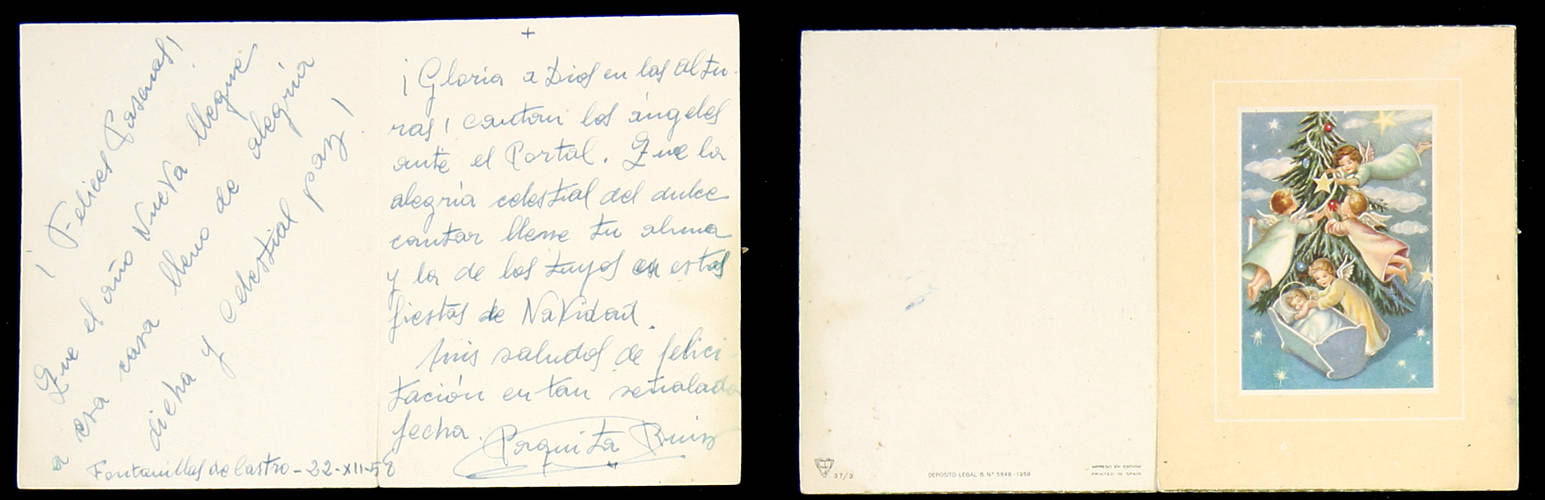 ¡Felices Pascuas!
Que el año Nuevo llegue
a esa casa lleno de alegría
dicha y celestial paz!
Fontanillas de Castro - 22-XII-58
+
¡Gloria a Dios en las altu-
ras! cantan los ángeles
ante el Portal. Que la
alegría celestial del dulce
cantar llene tu alma
y la de los tuyos en estas
fiestas de Navidad.
Mis saludos de felici-
tación en tan señalada
fecha. Paquita Ruiz
37/3
DEPOSITO LEGAL B. Nº 5548-1958
IMPRESO EN ESPAÑA
PRINTED IN SPAIN